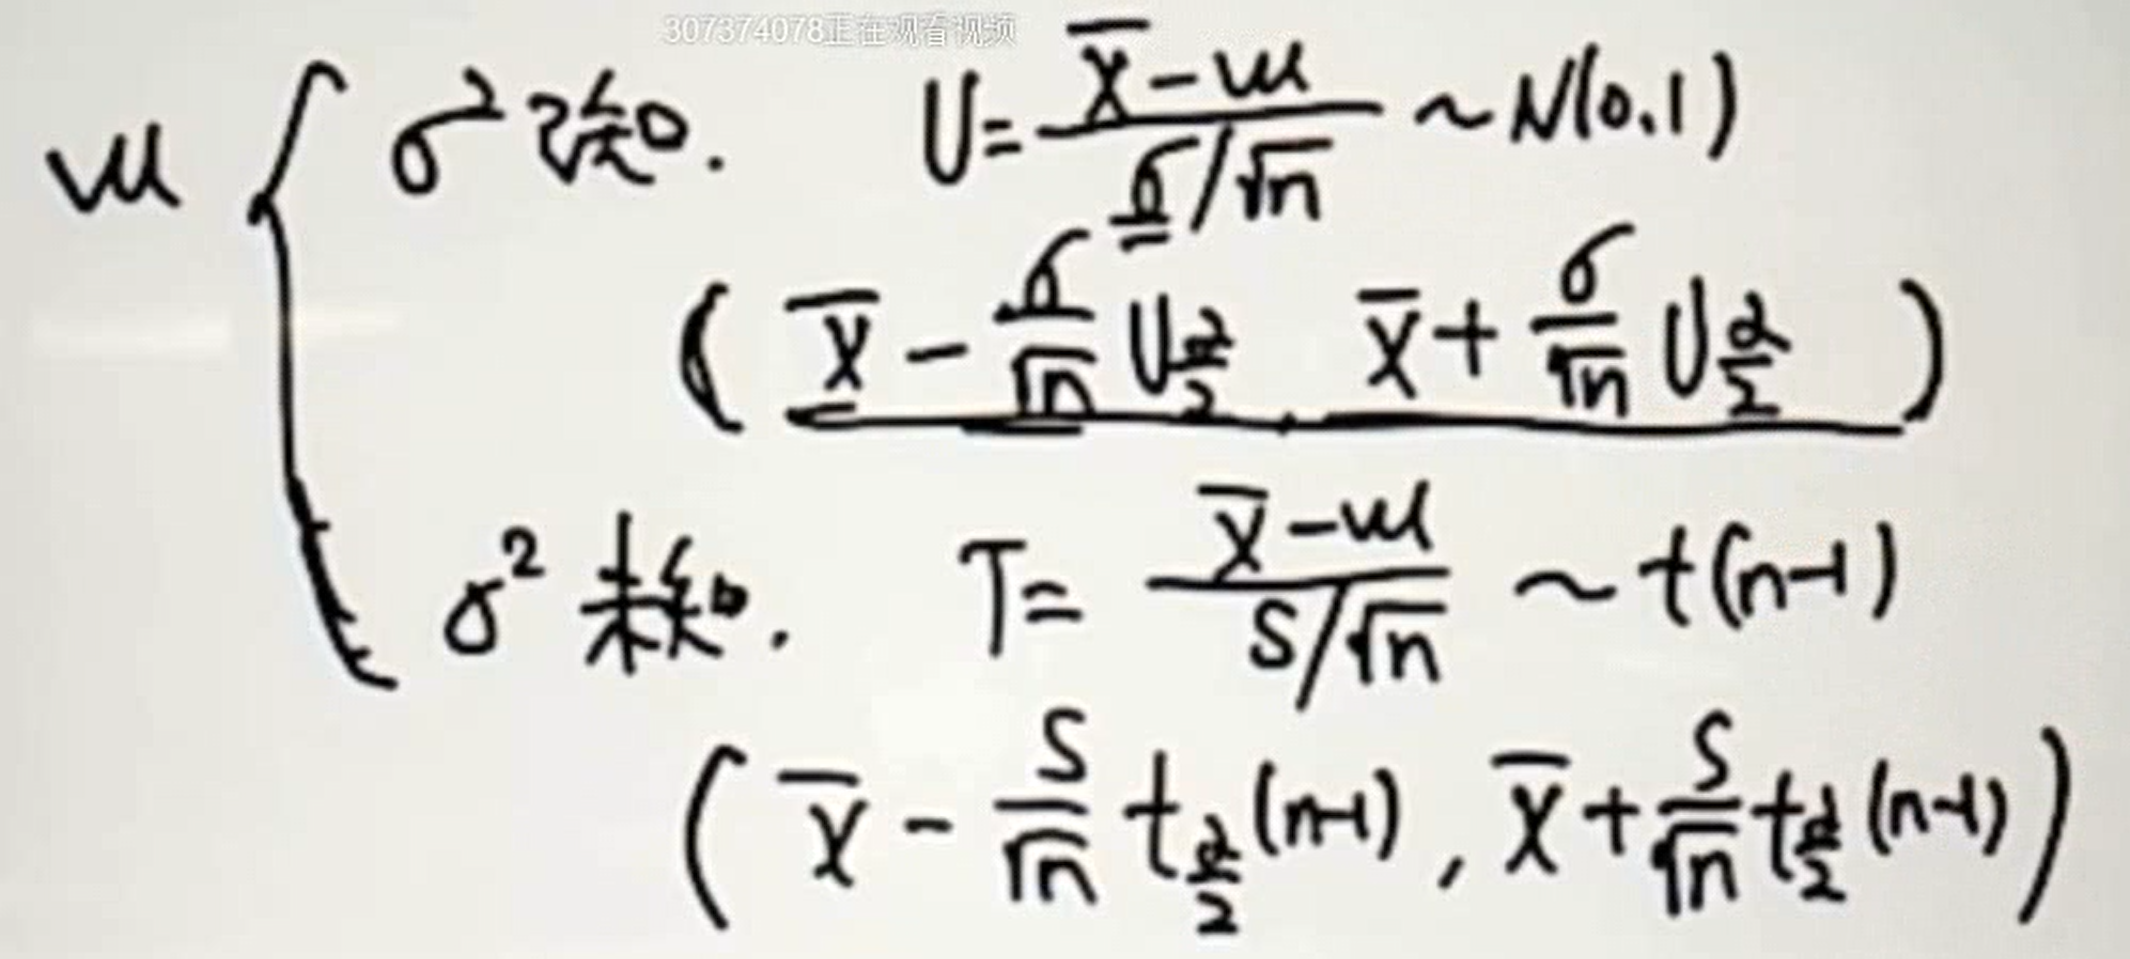 307374078正在观看视频
μ { σ² 已知. U = (x̄-μ)/(σ/√n) ~ N(0.1)
(x̄ - σ/√n U_{α/2}, x̄ + σ/√n U_{α/2})
σ² 未知. T = (x̄-μ)/(S/√n) ~ t(n-1)
(x̄ - S/√n t_{α/2}(n-1), x̄ + S/√n t_{α/2}(n-1))